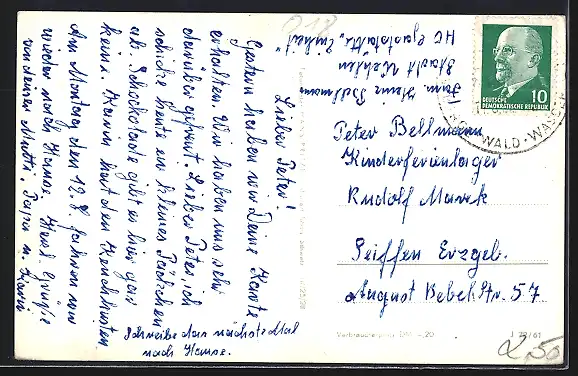 Lieber Peter!
Gestern haben wir Deine Karte
erhalten. Wir haben uns sehr
darüber gefreut. Lieber Peter ich
schicke heute ein kleines Päckchen
ab. Schockolade gibt es hier gar
keine. Mann hat den
Am Montag den 12.8. fahren wir
wieder nach Hause. Herzl. Grüße
von deiner Mutti, Papa u.
Schreibe das nächste Mal
nach Hause.
018
HO Gaststätte „Einheit"
Stadt Wehlen
DEUTSCHE
DEMOKRATISCHE REPUBLIK 10
WALD · WASSER
Peter Bellmann
Kinderferienlager
Rudolf Marek
Seiffen Erzgeb.
August Bebel Str. 57
Verbraucherpr. DM -,20
J 22/61
2,50